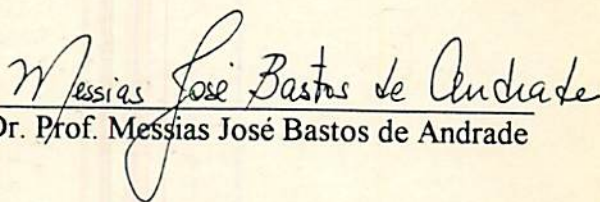 Messias José Bastos de Andrade
Dr. Prof. Messias José Bastos de Andrade